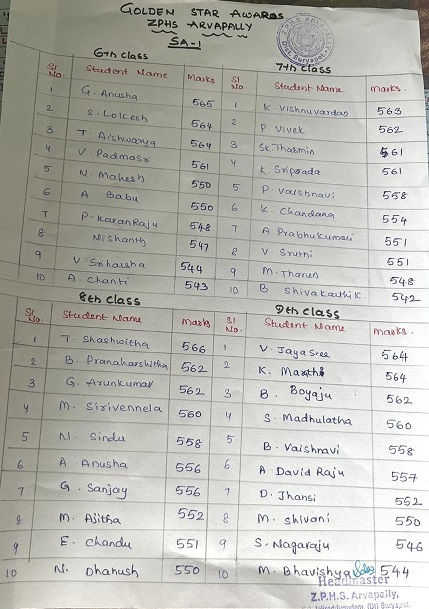 GOLDEN STAR AWARDS
ZPHS ARVAPALLY
SA-1
6th class
Sl No. Student Name Marks
1 G. Anusha 565
2 S. Lokesh 564
3 T. Aishwarya 564
4 V. Padmasri 561
5 N. Mahesh 550
6 A. Babu 550
7 P. KaranRaju 548
8 Nishanth 547
9 V. Sriharsha 544
10 A. Chanti 543
7th class
Sl No. Student Name Marks.
1 K. Vishnuvardan 563
2 P. Vivek 562
3 Sk. Thasmin 561
4 K. Sriprada 561
5 P. Vaishnavi 558
6 K. Chandana 554
7 A Prabhukumari 551
8 V. Sruthi 551
9 M. Tharun 548
10 B Shivakarthik 542
8th class
Sl No. Student Name Marks
1 T. Shashwitha 566
2 B. Pranaharshitha 562
3 G. Arunkumar 562
4 M. Sirivennela 560
5 N. Sindu 558
6 A Anusha 556
7 G. Sanjay 556
8 M. Ajitha 552
9 E. Chandu 551
10 N. Dhanush 550
9th class
Sl No. Student Name Marks.
1 V. Jaya Sree 564
2 K. Marthi 564
3 B. Boyaju 562
4 S. Madhulatha 560
5 B. Vaishnavi 558
6 A David Raju 557
7 D. Jhansi 552
8 M. Shivani 550
9 S. Nagaraju 546
10 M. Bhavishya 544
Headmaster
Z.P.H.S. Arvapally,